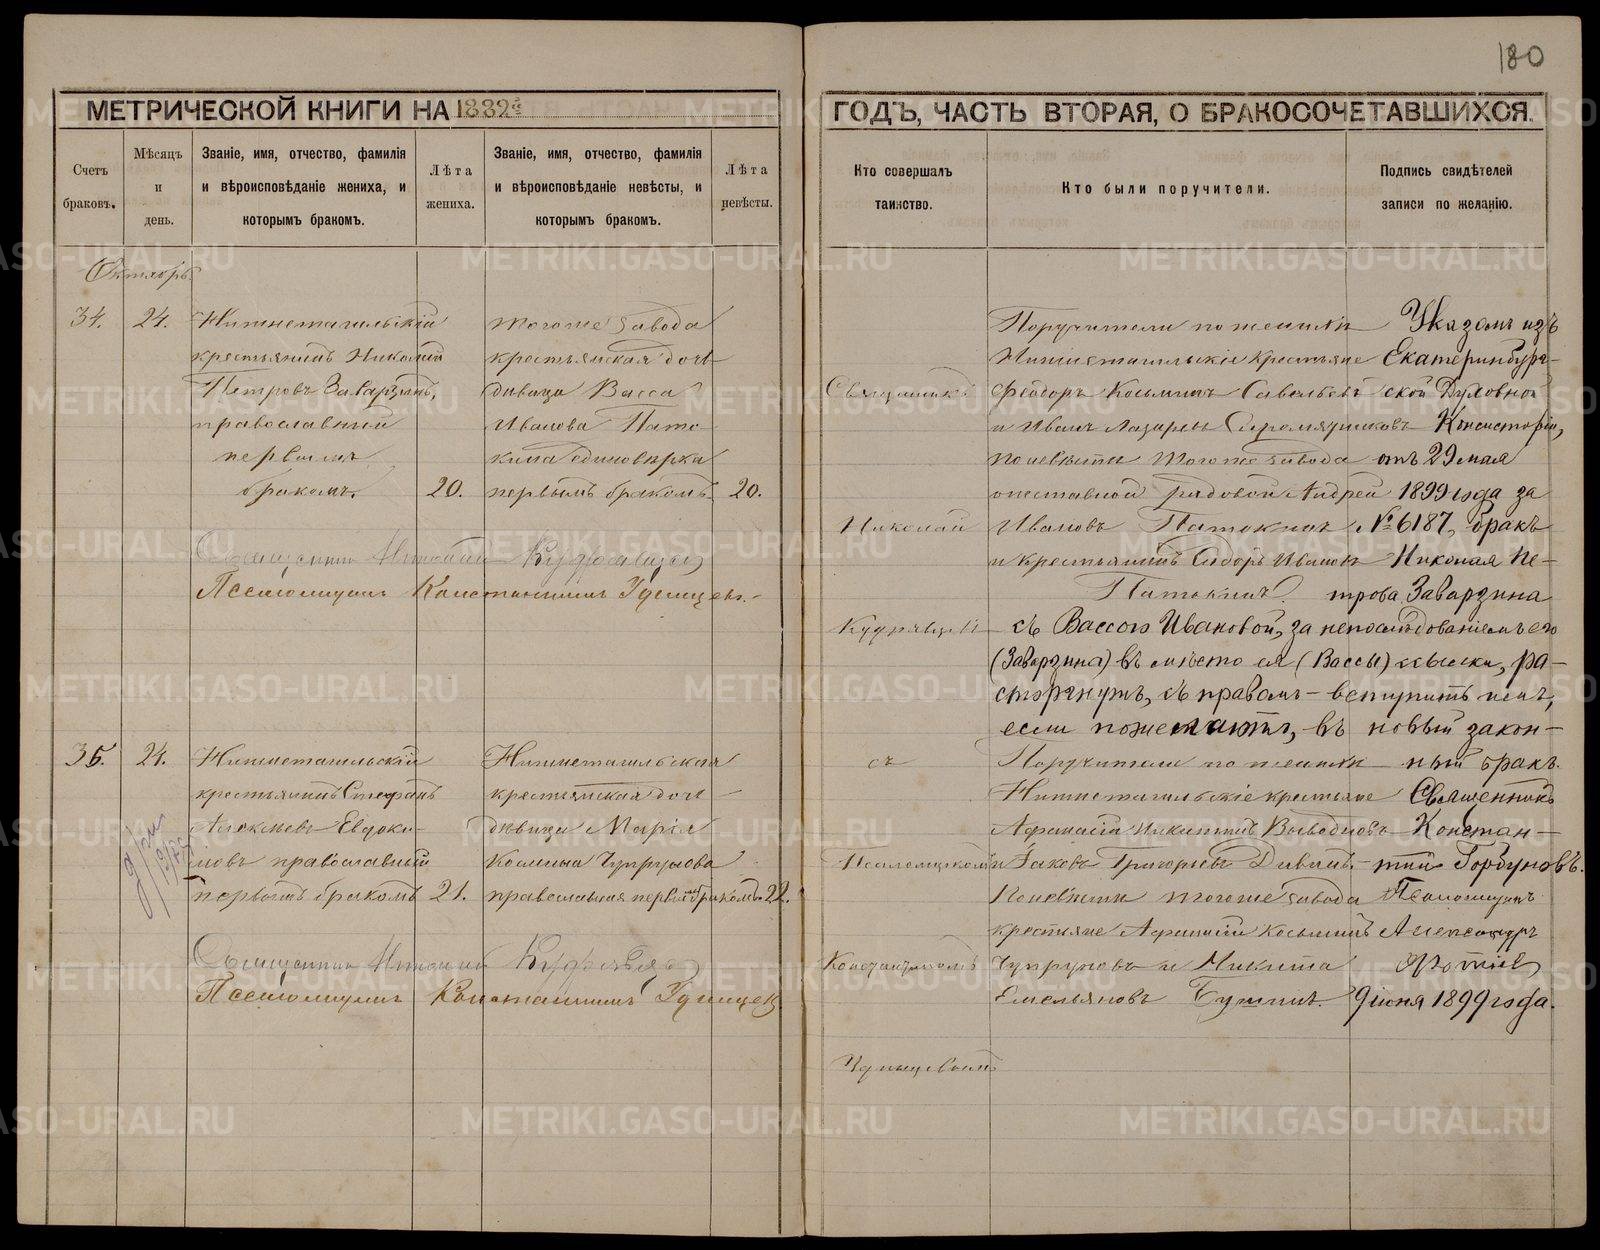 180
МЕТРИЧЕСКОЙ КНИГИ НА 1882й
ГОДЪ, ЧАСТЬ ВТОРАЯ, О БРАКОСОЧЕТАВШИХСЯ.
Счетъ
браковъ.
Мѣсяцъ
и
день.
Званіе, имя, отчество, фамилія
и вѣроисповѣданіе жениха, и
которымъ бракомъ.
Лѣта
жениха.
Званіе, имя, отчество, фамилія
и вѣроисповѣданіе невѣсты, и
которымъ бракомъ.
Лѣта
невѣсты.
Кто совершалъ
таинство.
Кто были поручители.
Подпись свидѣтелей
записи по желанію.
Октябрь
34.
24.
Нижнетагильскій
крестьянинъ Николай
Петровъ Заварзинъ,
православный
первымъ
бракомъ.
20.
тогоже завода
крестьянская доч-
дѣвица Васса
Иванова Пато-
кина единовѣрка
первымъ бракомъ
20.
Священникъ
Николай
Кудрявцев
съ
Псаломщикомъ
Константиномъ
Удинцевымъ
Поручители по женихѣ
Нижнетагильскіе крестьяне
Феодоръ Косьминъ Савельевъ
и Иванъ Лазаревъ Сыромятниковъ
по невѣстѣ тогоже завода
отставной рядовой Андрей
Ивановъ Патокинъ
и крестьянинъ Сидоръ Ивановъ
Патокинъ
Указомъ изъ
Екатеринбург-
ской Духовной
Консисторіи,
отъ 29 мая
1899 года за
№ 6187, бракъ
Николая Пе-
трова Заварзина
съ Вассою Ивановой, за непослѣдованіемъ его
(Заварзина) въ мѣсто ея (Вассы) ссылки, ра-
сторгнутъ, съ правомъ - вступить имъ,
если пожелаютъ, въ новый закон-
ный бракъ.
Священникъ
Констан-
тинъ Горбуновъ.
Псаломщикъ
Александръ
9 іюня 1899 года.
Священникъ Николай Кудрявцев
Псаломщикъ Константинъ Удинцевъ.
35.
24.
Нижнетагильскій
крестьянинъ Стефанъ
Алексѣевъ Евдоки-
мовъ православный
первымъ бракомъ
21.
Нижнетагильская
крестьянская доч-
дѣвица Марія
Косьмина Чупрунова
православная первымъ бракомъ
22.
Поручители по женихѣ
Нижнетагильскіе крестьяне
Афанасій Никитинъ
и Іаковъ Григорьевъ
По невѣстѣ тогоже завода
крестьяне Афанасій Косьминъ
Чупруновъ и Никита
Емельяновъ
Священникъ Николай Кудрявцев
Псаломщикъ Константинъ Удинцев